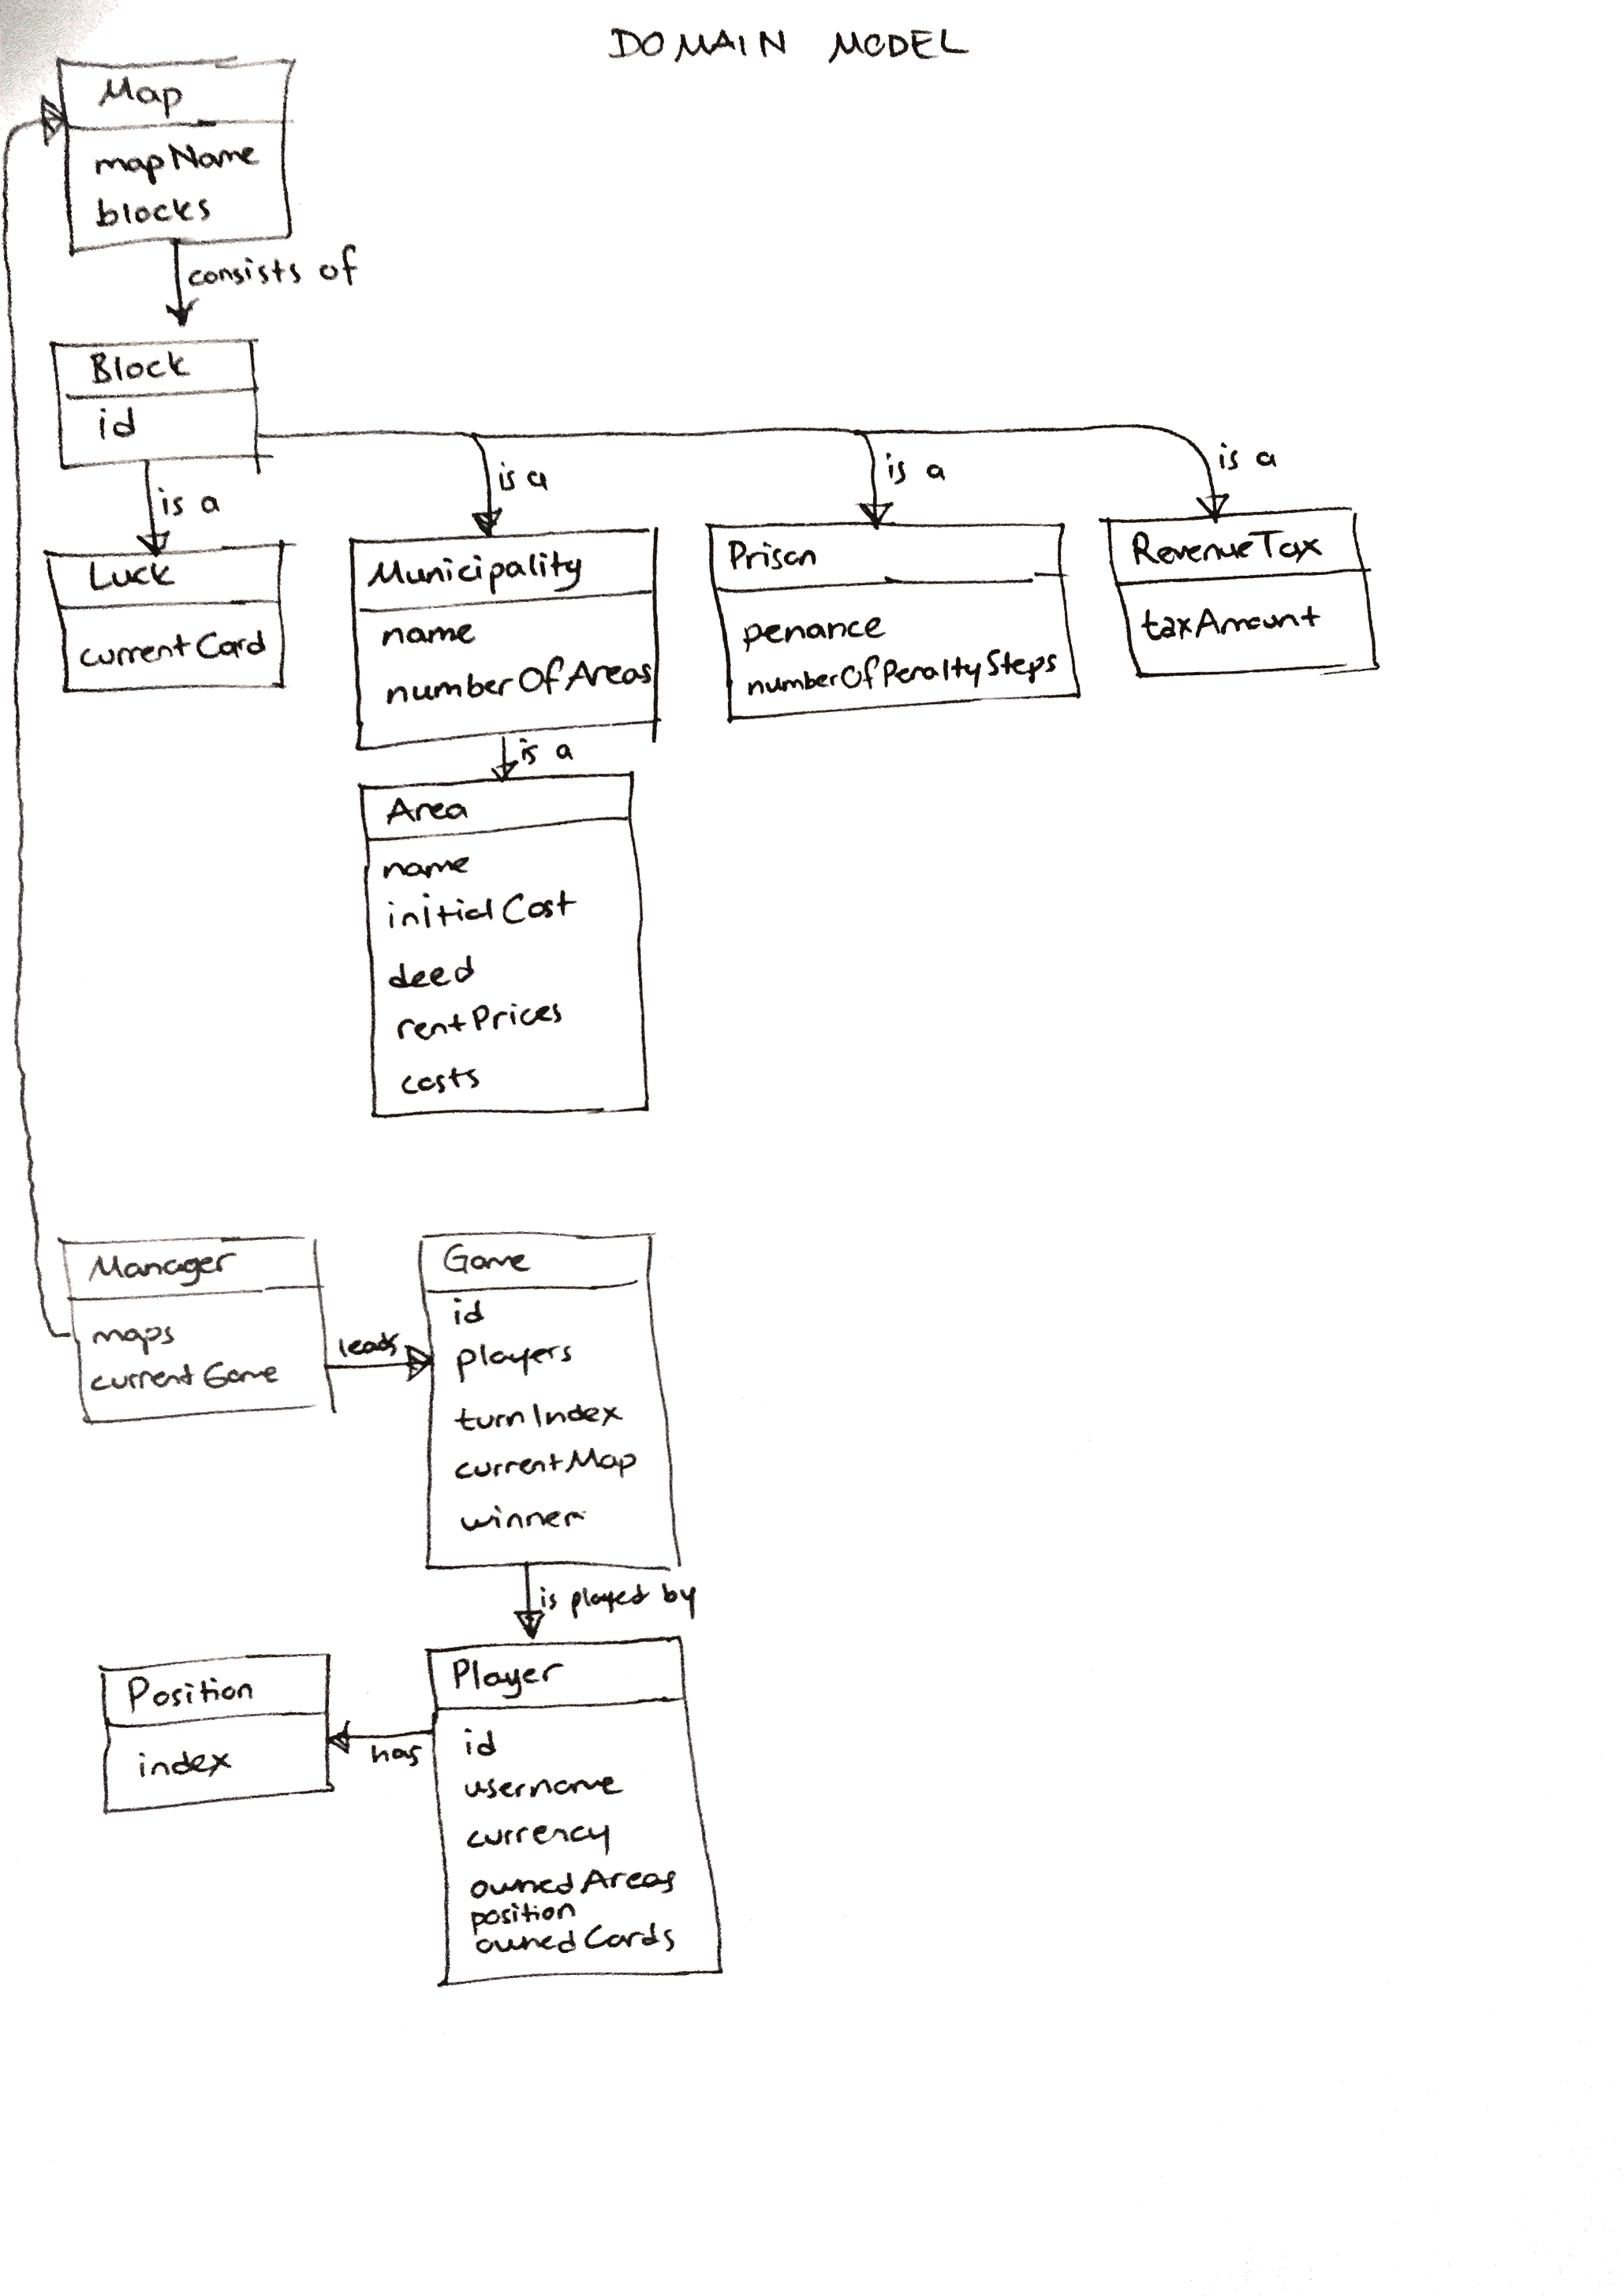 DOMAIN MODEL
Map
mapName
blocks
consists of
Block
id
is a
is a
is a
is a
Luck
currentCard
Municipality
name
numberOfAreas
Prison
penance
numberOfPenaltySteps
RevenueTax
taxAmount
is a
Area
name
initialCost
deed
rentPrices
costs
Manager
maps
currentGame
leads
Game
id
players
turnIndex
currentMap
winner
is played by
Position
index
has
Player
id
username
currency
ownedAreas
position
ownedCards